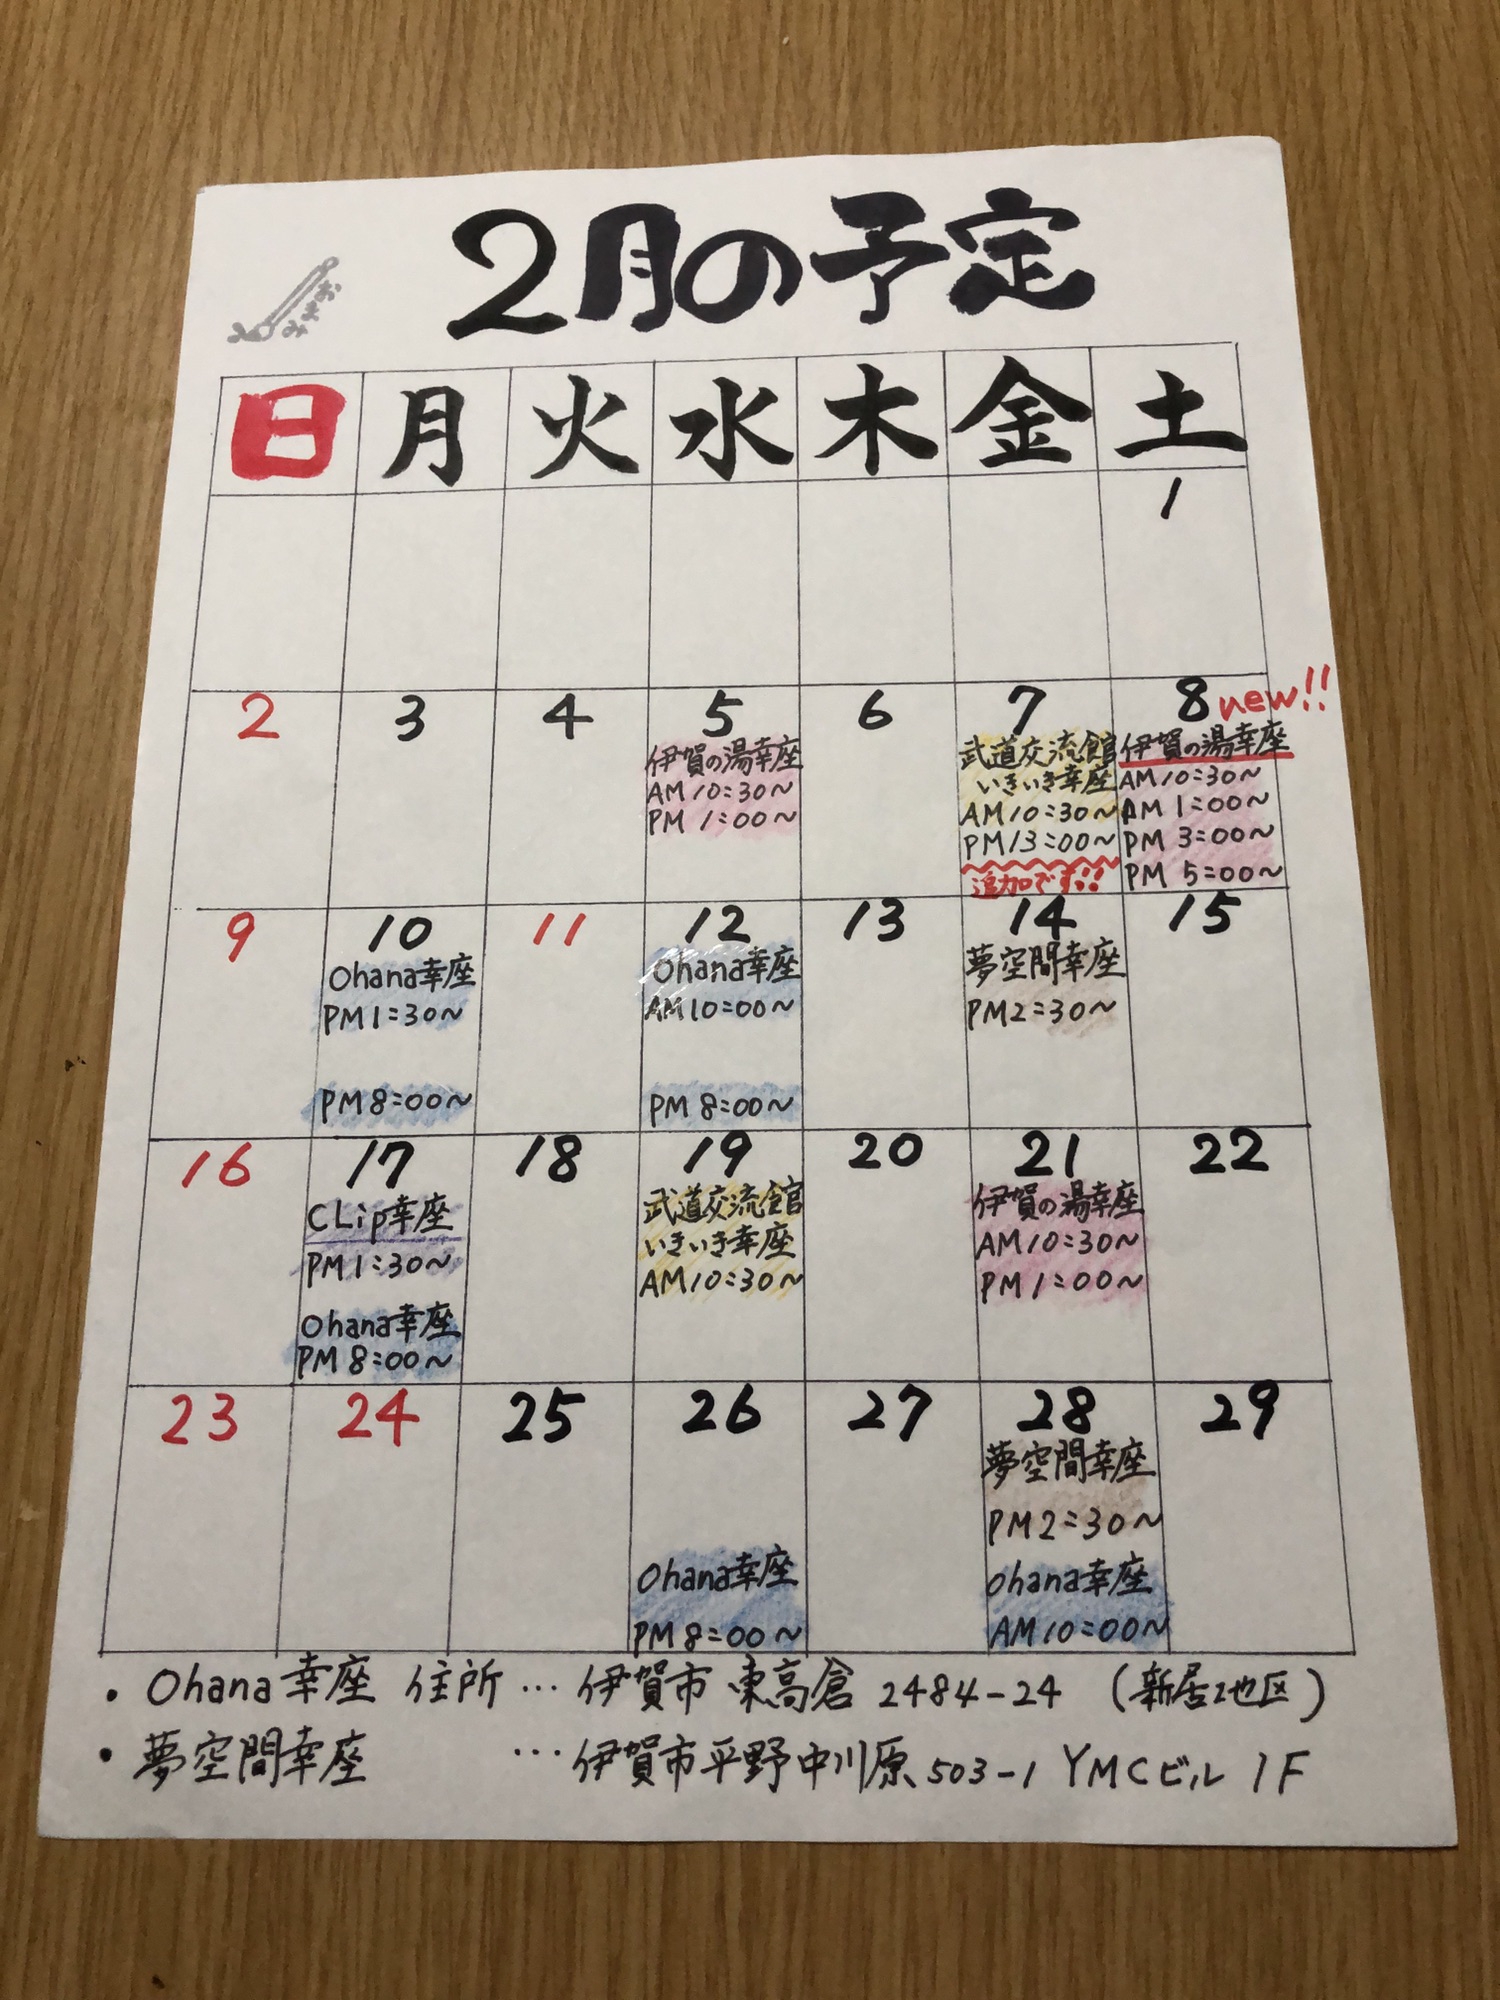 2月の予定
おまさみ
日 月 火 水 木 金 土
1
2 3 4 5 6 7 8 new!!
伊賀の湯幸座
AM10:30~
PM 1:00~
武道交流館
いきいき幸座
AM10:30~
PM13:00~
追加です!!
伊賀の湯幸座
AM10:30~
AM 1:00~
PM 3:00~
PM 5:00~
9 10 11 12 13 14 15
Ohana幸座
PM1:30~
PM8:00~
Ohana幸座
AM10:00~
PM 8:00~
夢空間幸座
PM2:30~
16 17 18 19 20 21 22
CLip幸座
PM1:30~
Ohana幸座
PM 8:00~
武道交流館
いきいき幸座
AM10:30~
伊賀の湯幸座
AM10:30~
PM 1:00~
23 24 25 26 27 28 29
Ohana幸座
PM 8:00~
夢空間幸座
PM2:30~
ohana幸座
AM10:00~
・Ohana幸座 住所…伊賀市 東高倉 2484-24 (新居地区)
・夢空間幸座 …伊賀市平野中川原503-1 YMCビル 1F